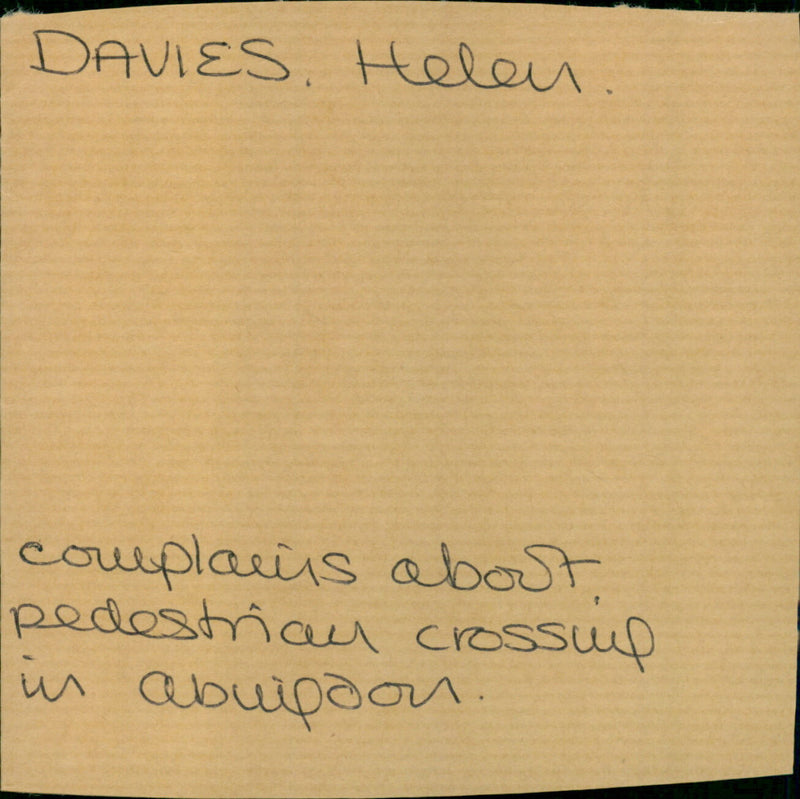 DAVIES. Helen.
complains about
pedestrian crossing
in abingdon.